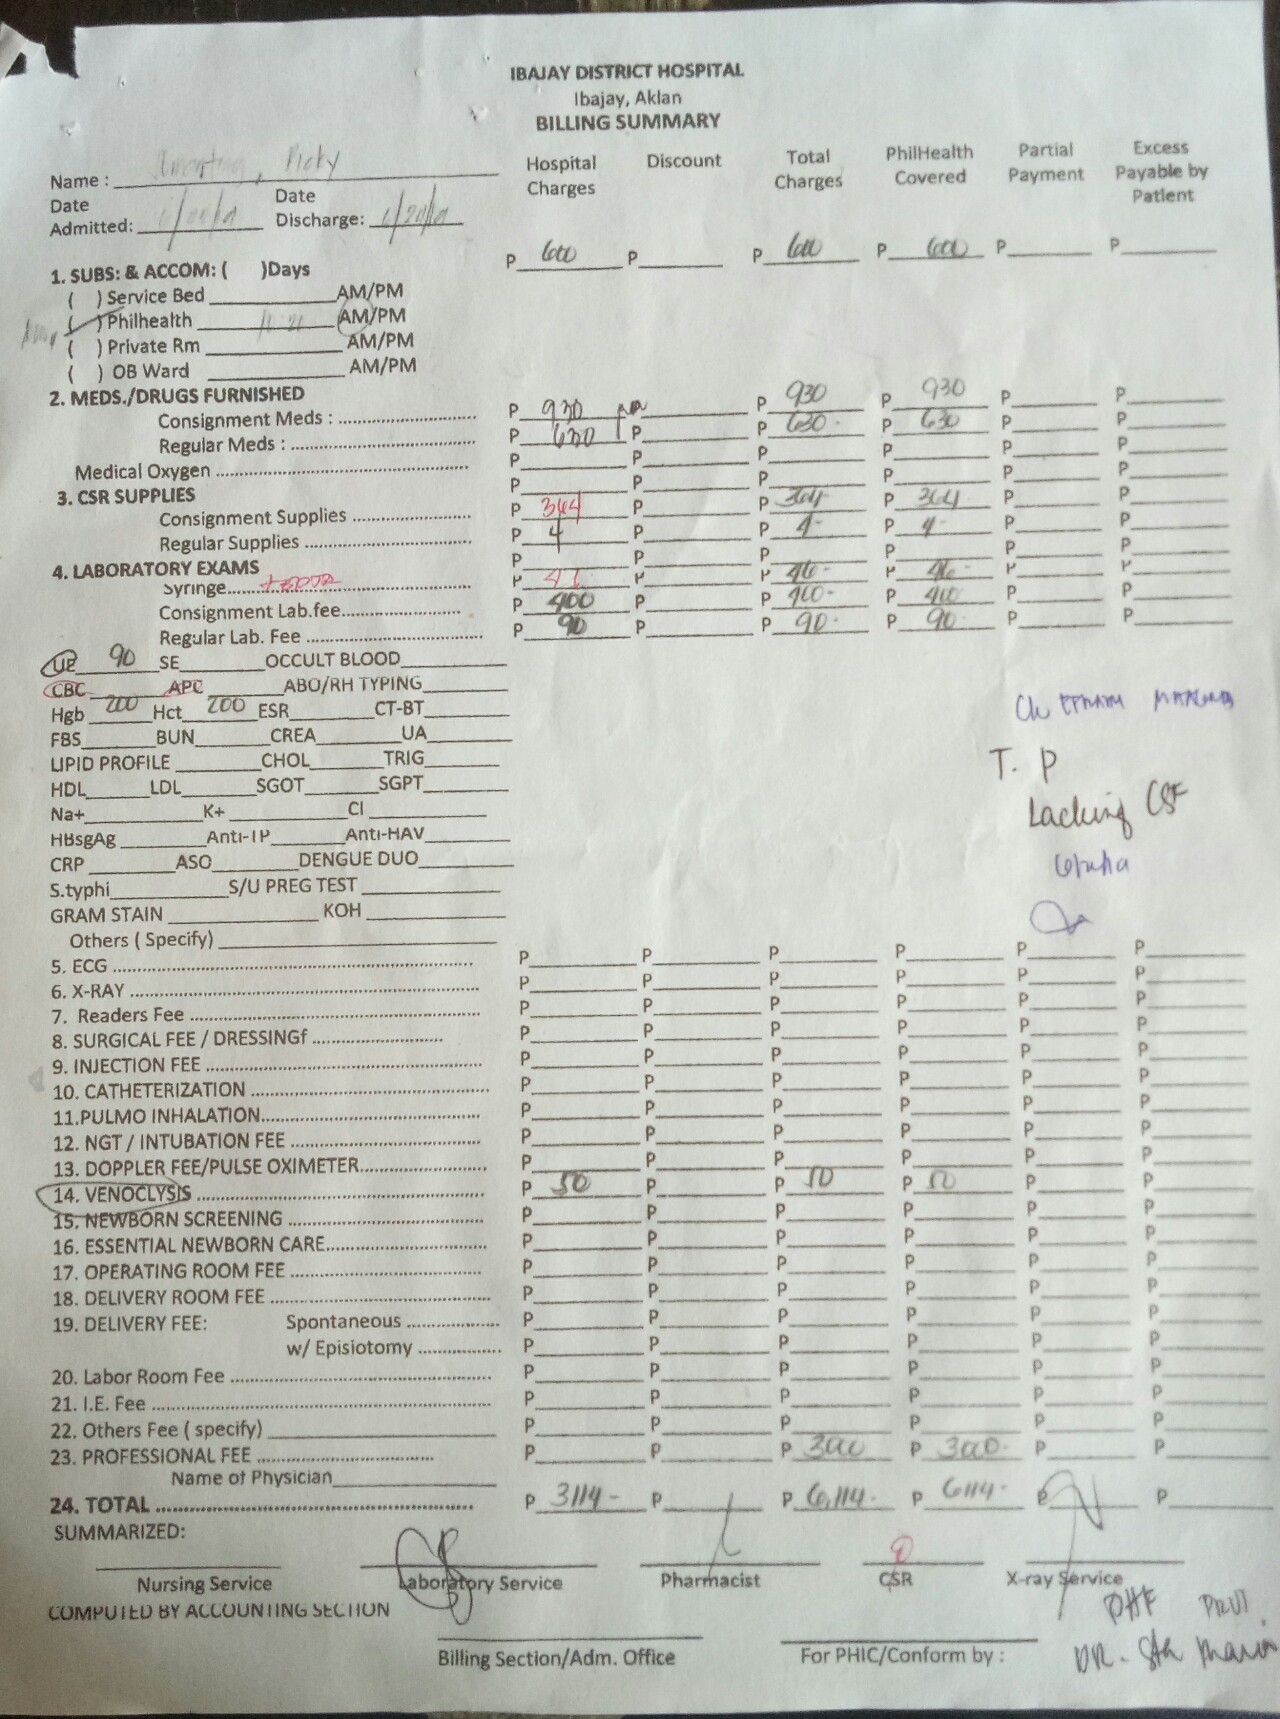 IBAJAY DISTRICT HOSPITAL
Ibajay, Aklan
BILLING SUMMARY
Hospital Charges Discount Total Charges PhilHealth Covered Partial Payment Excess Payable by Patient
Name : Ricky
Date Admitted: Date Discharge:
P 600 P P 600 P 600 P P
1. SUBS: & ACCOM: ( )Days
( ) Service Bed AM/PM
( ) Philhealth AM/PM
( ) Private Rm AM/PM
( ) OB Ward AM/PM
2. MEDS./DRUGS FURNISHED
Consignment Meds : P 930 P 930 P 930 P P
Regular Meds : P 630 P P 630 P 630 P P
Medical Oxygen P P P P P P
3. CSR SUPPLIES P P P P P P
Consignment Supplies P 364 P P 364 P 364 P P
Regular Supplies P 4 P P 4 P 4 P P
4. LABORATORY EXAMS P P P P P P
Syringe P 46 P P 46 P 46 P P
Consignment Lab.fee P 400 P P 400 P 400 P P
Regular Lab. Fee P 90 P P 90 P 90 P P
UE 90 SE OCCULT BLOOD
CBC APC ABO/RH TYPING
Hgb 200 Hct 200 ESR CT-BT
FBS BUN CREA UA
LIPID PROFILE CHOL TRIG
HDL LDL SGOT SGPT
Na+ K+ Cl
HBsgAg Anti-TP Anti-HAV
CRP ASO DENGUE DUO
S.typhi S/U PREG TEST
GRAM STAIN KOH
Others ( Specify)
T. P
Lacking CSF
5. ECG P P P P P P
6. X-RAY P P P P P P
7. Readers Fee P P P P P P
8. SURGICAL FEE / DRESSINGf P P P P P P
9. INJECTION FEE P P P P P P
10. CATHETERIZATION P P P P P P
11.PULMO INHALATION P P P P P P
12. NGT / INTUBATION FEE P P P P P P
13. DOPPLER FEE/PULSE OXIMETER P P P P P P
14. VENOCLYSIS P 50 P P 50 P 50 P P
15. NEWBORN SCREENING P P P P P P
16. ESSENTIAL NEWBORN CARE P P P P P P
17. OPERATING ROOM FEE P P P P P P
18. DELIVERY ROOM FEE P P P P P P
19. DELIVERY FEE: Spontaneous P P P P P P
w/ Episiotomy P P P P P P
20. Labor Room Fee P P P P P P
21. I.E. Fee P P P P P P
22. Others Fee ( specify) P P P P P P
23. PROFESSIONAL FEE P P P 3000 P 3000 P P
Name of Physician
24. TOTAL P 3114- P P 6,114- P 6114- P P
SUMMARIZED:
Nursing Service Laboratory Service Pharmacist CSR X-ray Service
COMPUTED BY ACCOUNTING SECTION
Billing Section/Adm. Office For PHIC/Conform by :
DR. Sta Maria